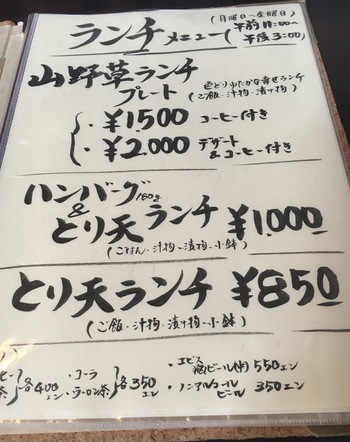 ランチメニュー (月曜日~金曜日) 午前11:00~午後3:00
山野草ランチプレート
色とりどりゆたかな幸せランチ
(ご飯・汁物・漬け物)
・¥1,500 コーヒー付き
・¥2,000 デザート&コーヒー付き
ハンバーグ160g & とり天ランチ ¥1,000
(ごはん・汁物・漬物・小鉢)
とり天ランチ ¥850
(ご飯・汁物・漬け物・小鉢)
各400エン
・コーラ
・ウーロン茶 各350エン
・エビス瓶ビール(中) 550エン
・ノンアルコールビール 350エン